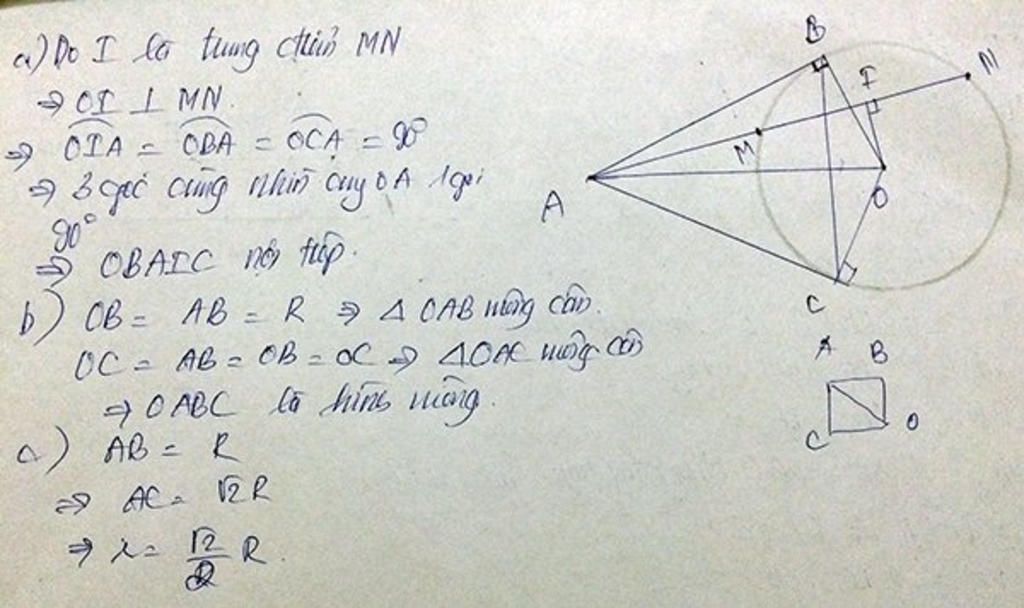 a) Do I là trung điểm MN
⇒ OI ⊥ MN.
⇒ OIA = OBA = OCA = 90°
⇒ 3 góc cùng nhìn OA 1 góc
90°
⇒ OBAIC nội tiếp.
b) OB = AB = R ⇒ Δ OAB vuông cân.
OC = AB = OB = OC ⇒ ΔOAC vuông cân
⇒ OABC là hình vuông.
c) AB = R
⇒ AC = √2 R
⇒ r = √2/2 R.
B
I
N
M
A
O
C
A B
C O